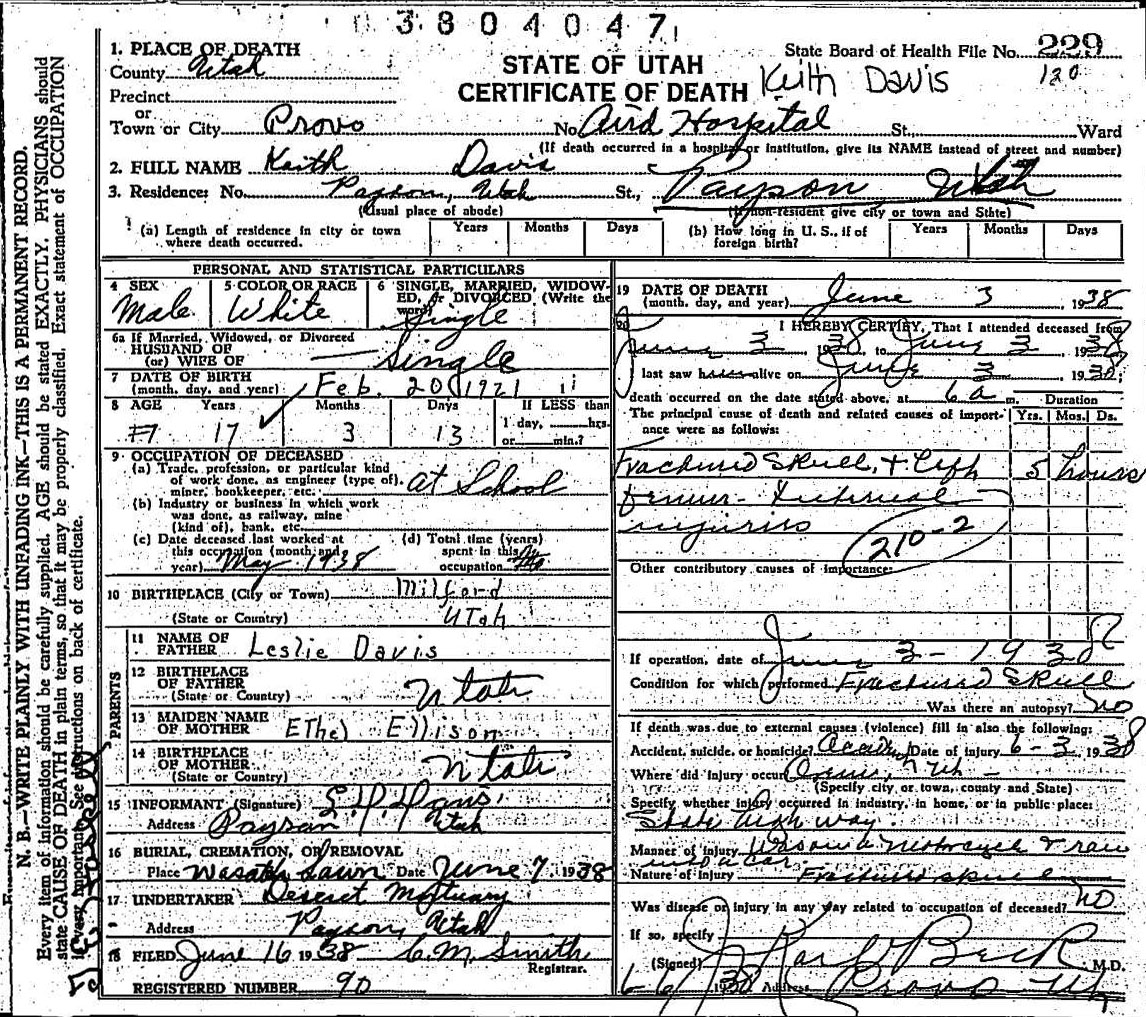 03804047
1. PLACE OF DEATH
County Utah
STATE OF UTAH
CERTIFICATE OF DEATH
State Board of Health File No. 229
120
Keith Davis
Precinct
or
Town or City Provo No. Aird Hospital St., Ward
(If death occurred in a hospital or institution, give its NAME instead of street and number)
2. FULL NAME Keith Davis
3. Residence: No. Payson, Utah St., Payson Utah
(Usual place of abode) (If non-resident give city or town and State)
(a) Length of residence in city or town where death occurred. Years Months Days (b) How long in U. S., if of foreign birth? Years Months Days
PERSONAL AND STATISTICAL PARTICULARS
4 SEX 5 COLOR OR RACE 6 SINGLE, MARRIED, WIDOWED, or DIVORCED (Write the word)
Male White Single
6a If Married, Widowed, or Divorced
HUSBAND OF
(or) WIFE OF — Single
7 DATE OF BIRTH
(month, day, and year) Feb. 20 1921
8 AGE Years Months Days If LESS than
17 3 13 1 day, hrs.
or min.?
9 OCCUPATION OF DECEASED
(a) Trade, profession, or particular kind
of work done, as engineer (type of), at School
miner, bookkeeper, etc.
(b) Industry or business in which work
was done, as railway, mine
(kind of), bank, etc.
(c) Date deceased last worked at
this occupation (month and
year) May 1938
(d) Total time (years)
spent in this
occupation
10 BIRTHPLACE (City or Town) Milford
(State or Country) Utah
PARENTS
11 NAME OF
FATHER Leslie Davis
12 BIRTHPLACE
OF FATHER Utah
(State or Country)
13 MAIDEN NAME
OF MOTHER Ethel Ellison
14 BIRTHPLACE
OF MOTHER Utah
(State or Country)
15 INFORMANT (Signature)
Address Payson Utah
16 BURIAL, CREMATION, OR REMOVAL
Place Wasatch Lawn Date June 7 1938
17 UNDERTAKER Deseret Mortuary
Address Payson, Utah
18 FILED June 16 1938 C.M. Smith
Registrar.
REGISTERED NUMBER 90
19 DATE OF DEATH
(month, day, and year) June 3 1938
20 I HEREBY CERTIFY, That I attended deceased from
June 3 1938 to June 3 1938
last saw alive on June 3 1938;
death occurred on the date stated above, at 6 a m. Duration
The principal cause of death and related causes of importance were as follows: Yrs. Mos. Ds.
Fractured Skull, + Left 5 hours
femur - Internal
injuries
210-2
Other contributory causes of importance:
If operation, date of June 3 - 1938
Condition for which performed Fractured Skull
Was there an autopsy? no
If death was due to external causes (violence) fill in also the following:
Accident, suicide, or homicide? Accident Date of injury 6-3 1938
Where did injury occur
(Specify city or town, county and State)
Specify whether injury occurred in industry, in home, or in public place:
State Highway
Manner of injury Was on a Motorcycle & ran
into a car.
Nature of injury Fractured skull
Was disease or injury in any way related to occupation of deceased? no
If so, specify
(Signed) J Karl Beck M.D.
6/6/1938 Address Provo
N. B.—WRITE PLAINLY WITH UNFADING INK—THIS IS A PERMANENT RECORD.
Every item of information should be carefully supplied. AGE should be stated EXACTLY. PHYSICIANS should
state CAUSE OF DEATH in plain terms, so that it may be properly classified. Exact statement of OCCUPATION
is very important. See instructions on back of certificate.